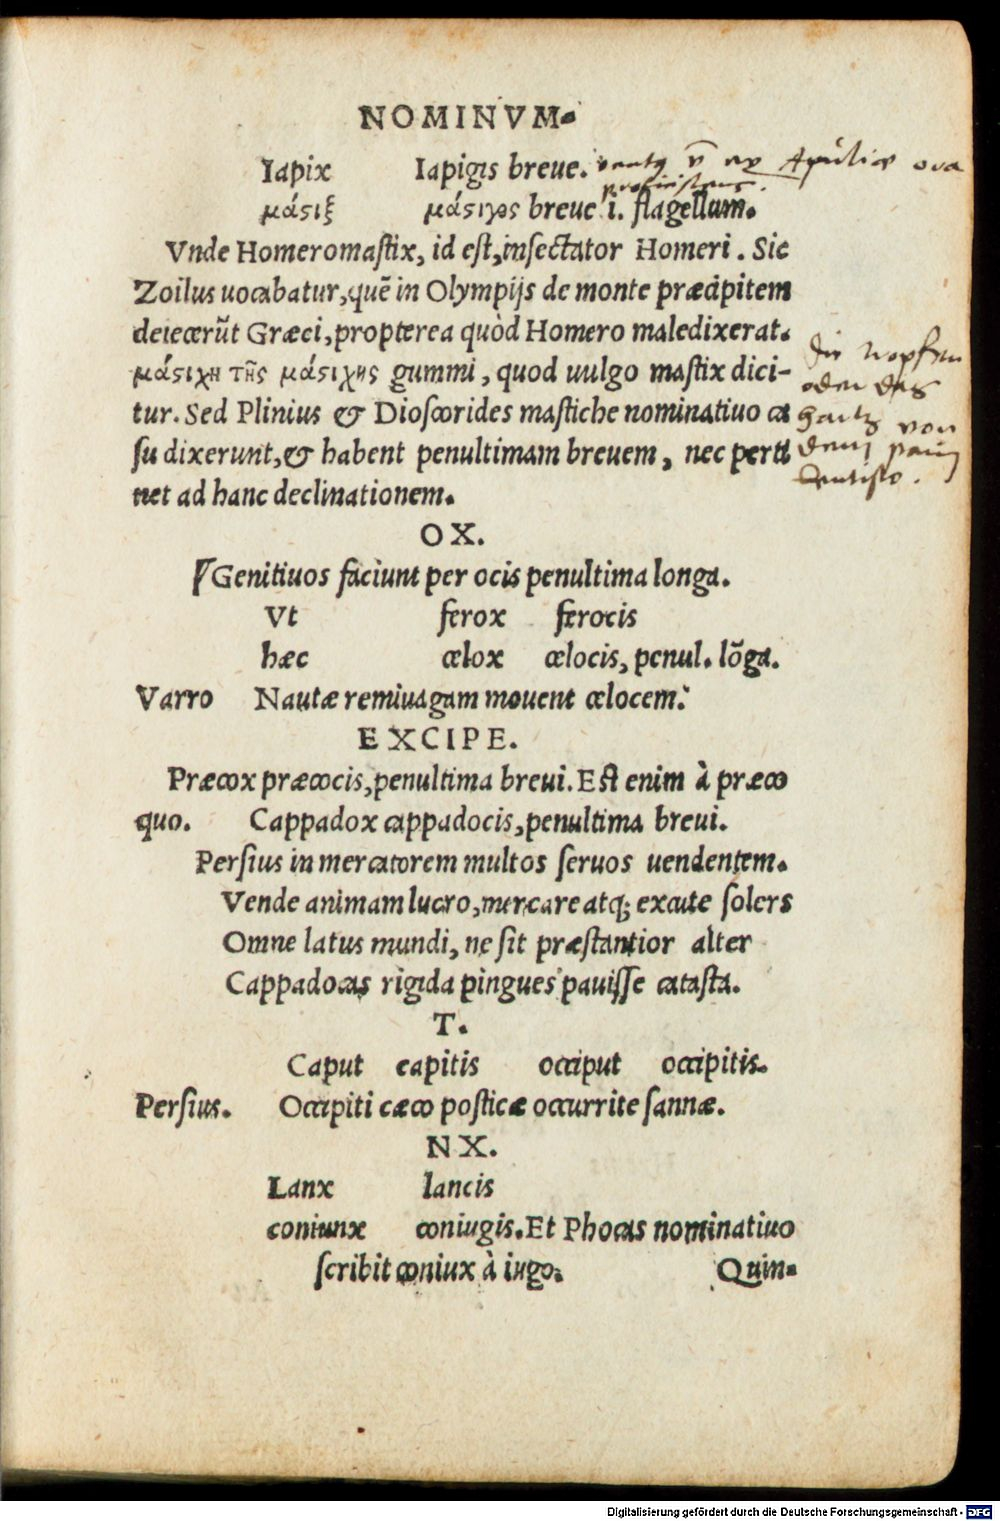 NOMINVM.
Iapix Iapigis breue. ventus ex Apuliae ora
proficiscens.
μάϛιξ μάϛιγος breue i. flagellum.
Vnde Homeromastix, id est, insectator Homeri. Sic
Zoilus uocabatur, quē in Olympijs de monte præcipitem
deiecerūt Græci, propterea quòd Homero maledixerat.
μάϛιχη τῆς μάϛιχης gummi, quod uulgo mastix dici-
tur. Sed Plinius & Dioscorides mastiche nominatiuo ca
su dixerunt, & habent penultimam breuem, nec perti
net ad hanc declinationem.
oder das
hartz von
dem paum
Lentisco.
OX.
Genitiuos faciunt per ocis penultima longa.
Vt ferox ferocis
hæc celox celocis, penul. lōga.
Varro Nautæ remiuagam mouent celocem.
EXCIPE.
Præcox præcocis, penultima breui. Est enim à præco
quo. Cappadox cappadocis, penultima breui.
Persius in mercatorem multos seruos uendentem.
Vende animam lucro, mercare atq; excute solers
Omne latus mundi, ne sit præstantior alter
Cappadocas rigida pingues pauisse catasta.
T.
Caput capitis occiput occipitis.
Persius. Occipiti cæco posticæ occurrite sannæ.
NX.
Lanx lancis
coniunx coniugis. Et Phocas nominatiuo
scribit coniux à iugo. Quin-
Digitalisierung gefördert durch die Deutsche Forschungsgemeinschaft - DFG